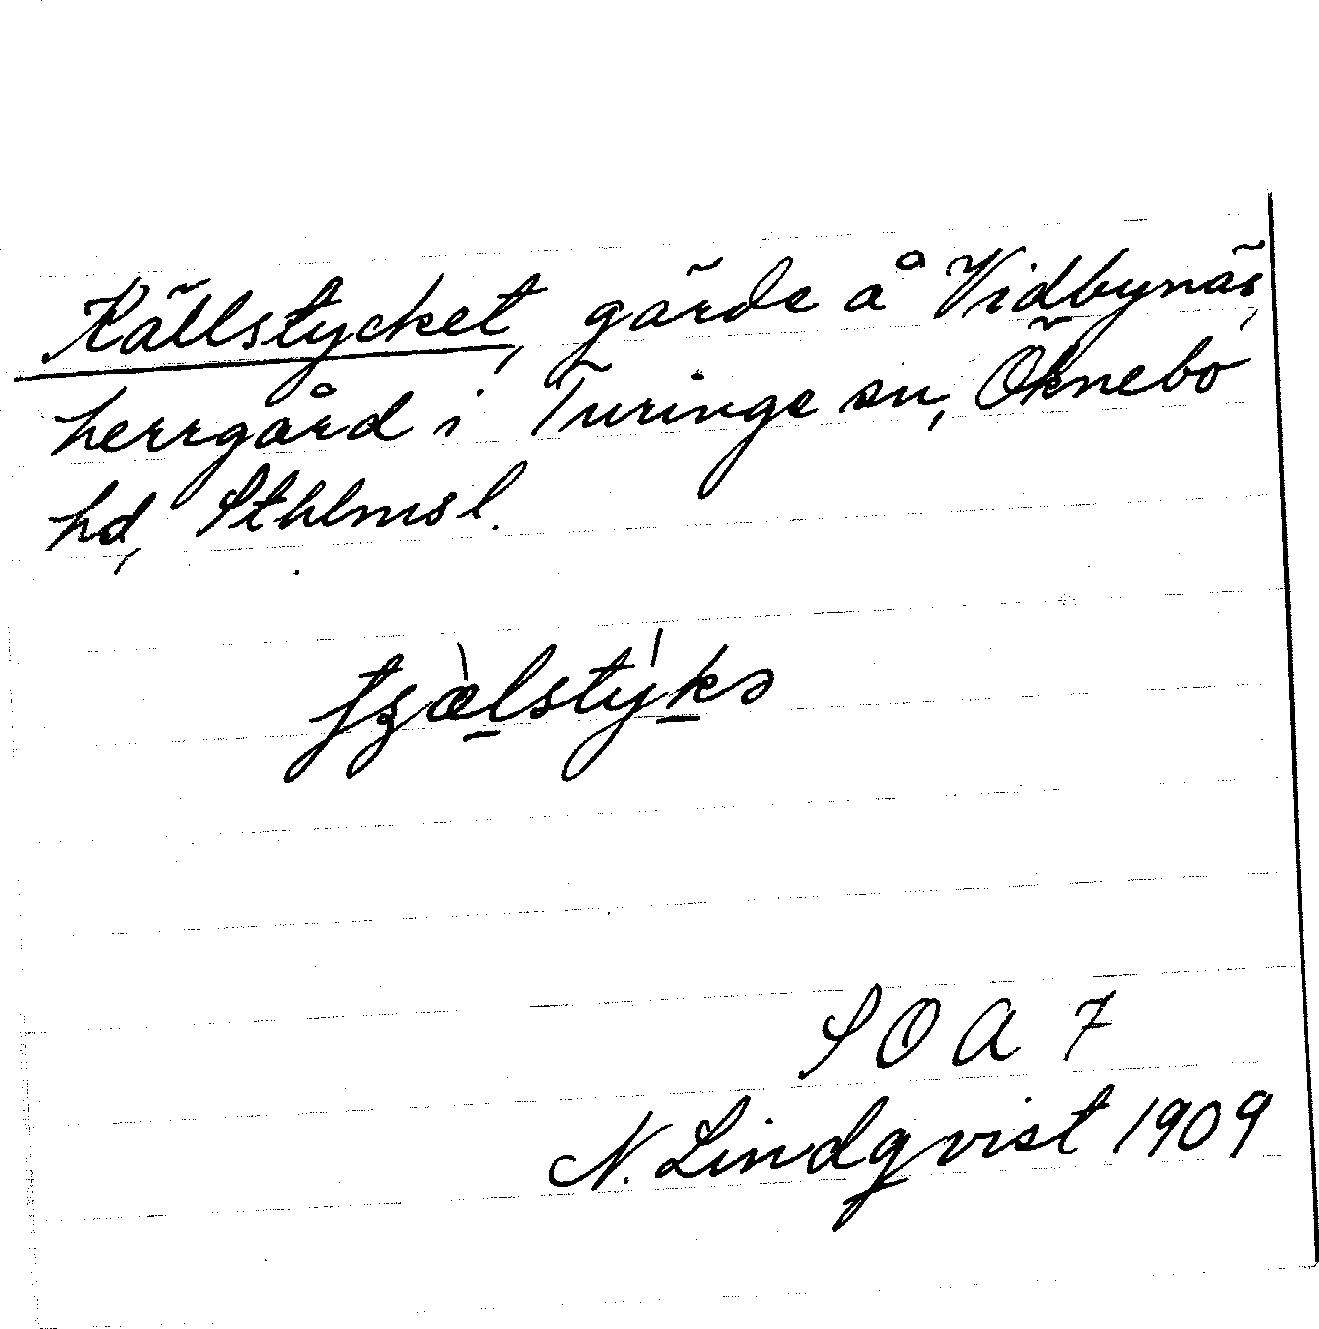 Källstycket, gärde å Vidbynäs,
herrgård i Turinge sn, Öknebo
hd, Sthlmsl.
SOA 7
N. Lindqvist 1909